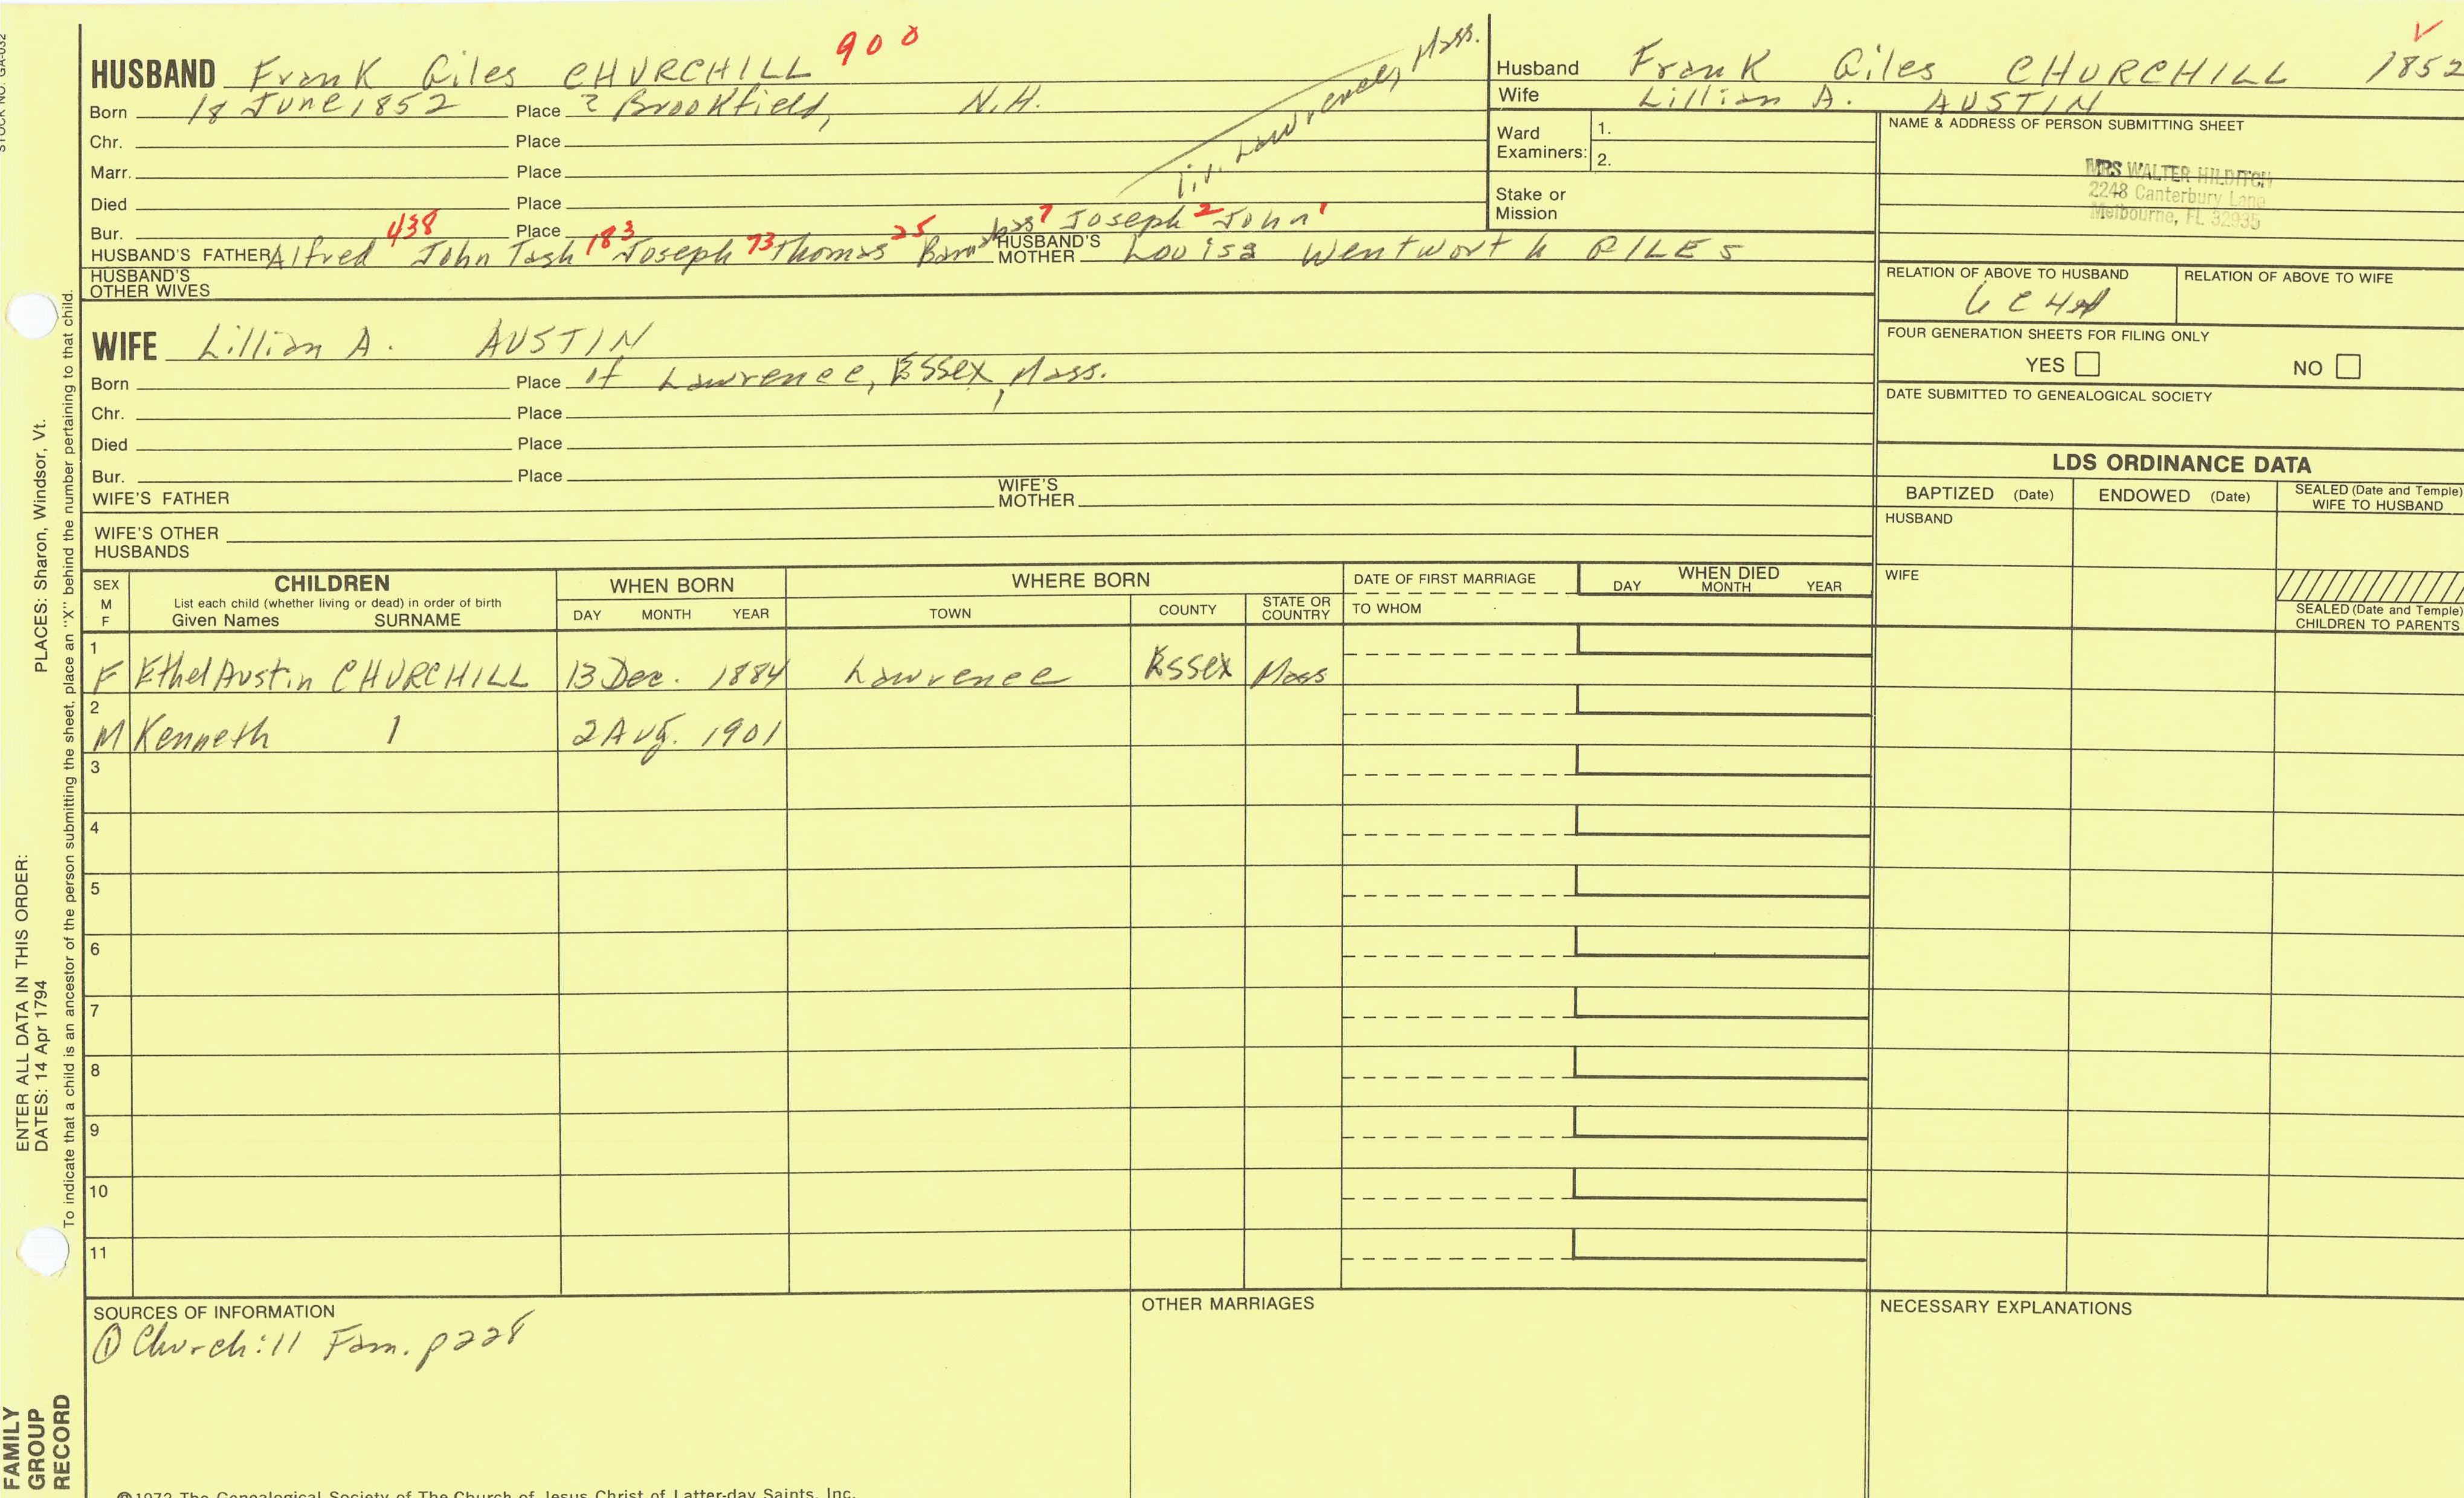 STOCK NO. GA-032
HUSBAND Frank Giles CHURCHILL 900
Born 18 June 1852 Place ? Brookfield, N.H.
Chr. Place
Marr. Place
Died Place
liv. Lawrence, Mass.
Bur. Place
HUSBAND'S FATHER Alfred 438 John Tash 183 Joseph 73 Thomas 25 Barnabas 7 Joseph 2 John 1
HUSBAND'S MOTHER Louisa Wentworth GILES
HUSBAND'S OTHER WIVES
WIFE Lillian A. AUSTIN
Born Place of Lawrence, Essex, Mass.
Chr. Place
Died Place
Bur. Place
WIFE'S FATHER WIFE'S MOTHER
WIFE'S OTHER HUSBANDS
Husband Frank Giles CHURCHILL 1852
Wife Lillian A. AUSTIN
Ward Examiners: 1.
2.
Stake or Mission
NAME & ADDRESS OF PERSON SUBMITTING SHEET
MRS WALTER HILDITCH
2248 Canterbury Lane
Melbourne, FL 32935
RELATION OF ABOVE TO HUSBAND RELATION OF ABOVE TO WIFE
FOUR GENERATION SHEETS FOR FILING ONLY
YES NO
DATE SUBMITTED TO GENEALOGICAL SOCIETY
LDS ORDINANCE DATA
BAPTIZED (Date) ENDOWED (Date) SEALED (Date and Temple) WIFE TO HUSBAND
HUSBAND
WIFE
SEALED (Date and Temple) CHILDREN TO PARENTS
SEX M F
CHILDREN
List each child (whether living or dead) in order of birth
Given Names SURNAME
WHEN BORN
DAY MONTH YEAR
WHERE BORN
TOWN COUNTY STATE OR COUNTRY
DATE OF FIRST MARRIAGE
TO WHOM
WHEN DIED
DAY MONTH YEAR
1 F Ethel Austin CHURCHILL 13 Dec. 1884 Lawrence Essex Mass
2 M Kenneth 1 2 Aug. 1901
3
4
5
6
7
8
9
10
11
SOURCES OF INFORMATION
① Churchill Fam. p228
OTHER MARRIAGES
NECESSARY EXPLANATIONS
ENTER ALL DATA IN THIS ORDER:
DATES: 14 Apr 1794 PLACES: Sharon, Windsor, Vt.
To indicate that a child is an ancestor of the person submitting the sheet, place an "X" behind the number pertaining to that child.
FAMILY
GROUP
RECORD
©1972 The Genealogical Society of The Church of Jesus Christ of Latter-day Saints, Inc.